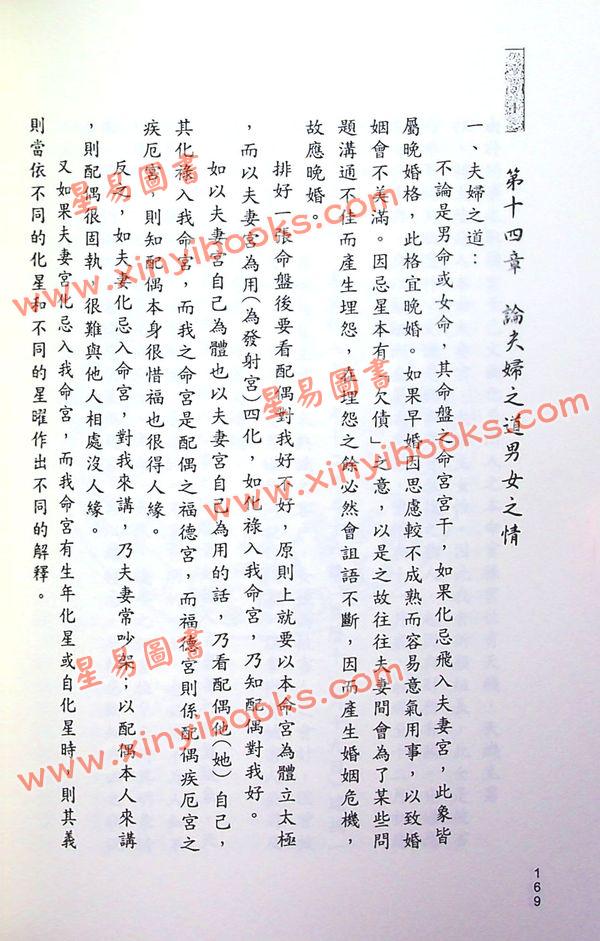 第十四章 論夫婦之道男女之情
一、夫婦之道：
不論是男命或女命，其命盤之命宮宮干，如果化忌飛入夫妻宮，此象皆
屬晚婚格，此格宜晚婚。如果早婚因思慮較不成熟而容易意氣用事，以致婚
姻會不美滿。因忌星本有「欠債」之意，以是之故往往夫妻間會為了某些問
題溝通不佳而產生埋怨，在埋怨之餘必然會詛語不斷，因而產生婚姻危機，
故應晚婚。
排好一張命盤後要看配偶對我好不好，原則上就要以本命宮為體立太極
，而以夫妻宮為用(為發射宮)四化，如化祿入我命宮，乃知配偶對我好。
如以夫妻宮自己為體也以夫妻宮自己為用的話，乃看配偶他(她)自己，
其化祿入我命宮，而我之命宮是配偶之福德宮，而福德宮則係配偶疾厄宮之
疾厄宮，則知配偶本身很惜福也很得人緣。
反之，如夫妻化忌入命宮，對我來講，乃夫妻常吵架；以配偶本人來講
，則配偶很固執，很難與他人相處沒人緣。
又如果夫妻宮化忌入我命宮，而我命宮有生年化星或自化星時，則其義
則當依不同的化星和不同的星曜作出不同的解釋。
169
星易圖書
www.xinyibooks.com
星易圖書
www.xinyibooks.com
星易圖書
www.xinyibooks.com
星易圖書
www.xinyibooks.com